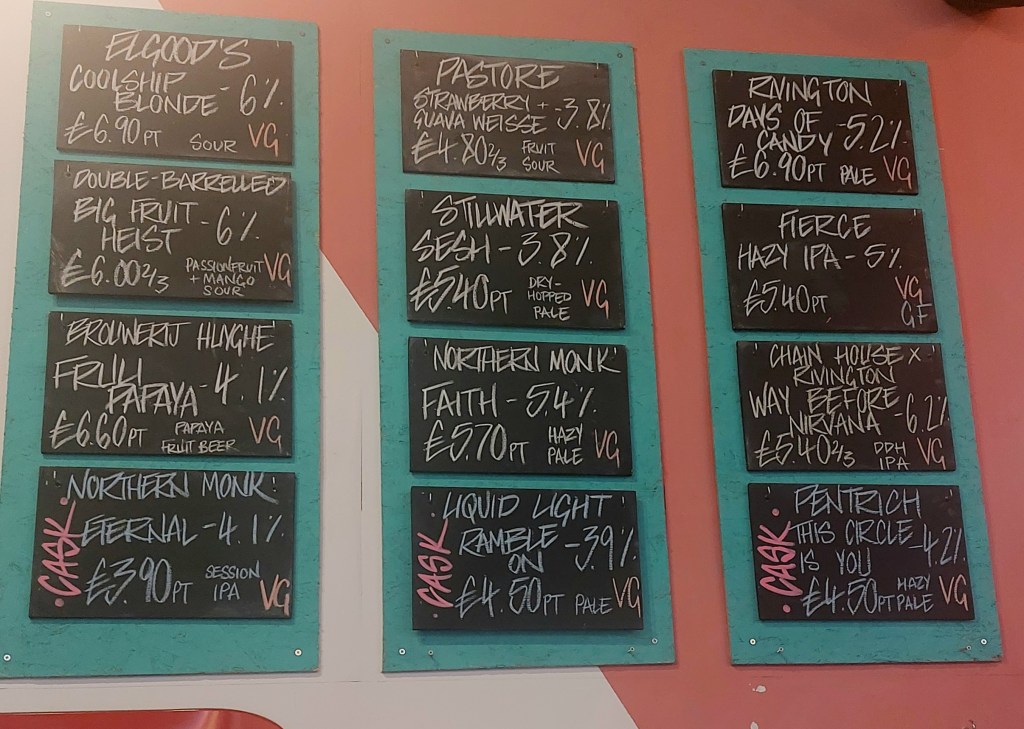 ELGOOD'S
COOLSHIP
BLONDE - 6%
£6.90PT SOUR VG
DOUBLE-BARRELLED
BIG FRUIT
HEIST - 6%
£6.00 2/3 PASSIONFRUIT
+ MANGO
SOUR VG
BROUWERIJ HUYGHE
FRULI
PAPAYA - 4.1%
£6.60PT PAPAYA
FRUIT BEER VG
NORTHERN MONK
ETERNAL - 4.1%
£3.90PT SESSION
IPA VG
CASK
PASTORE
STRAWBERRY +
GUAVA WEISSE - 3.8%
£4.80 2/3 FRUIT
SOUR VG
STILLWATER
SESH - 3.8%
£5.40PT DRY-
HOPPED
PALE VG
NORTHERN MONK
FAITH - 5.4%
£5.70PT HAZY
PALE VG
LIQUID LIGHT
RAMBLE
ON - 3.9%
£4.50PT PALE VG
CASK
RIVINGTON
DAYS OF
CANDY - 5.2%
£6.90PT PALE VG
FIERCE
HAZY IPA - 5%
£5.40PT VG
GF
CHAIN HOUSE X
RIVINGTON
WAY BEFORE
NIRVANA - 6.2%
£5.40 2/3 DDH
IPA VG
PENTRICH
THIS CIRCLE
IS YOU - 4.2%
£4.50PT HAZY
PALE VG
CASK